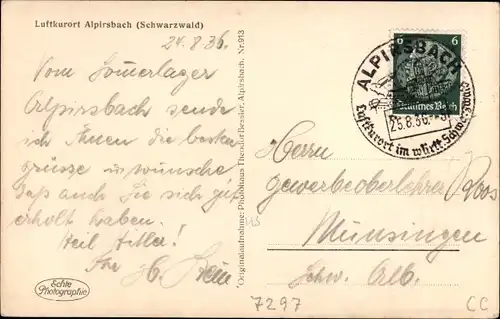 Luftkurort Alpirsbach (Schwarzwald)
24.8.36.
Vom Sommerlager
Alpirsbach sende
ich Ihnen die besten
Grüsse u. wünsche
daß auch Sie sich gut
erholt haben.
Heil Hitler!
Ihr
Echte
Photographie
Originalaufnahme: Photohaus Theodor Bessler, Alpirsbach. Nr. 913
6 6
Deutsches Reich
ALPIRSBACH
25.8.36.
Luftkurort im württ. Schwarzwald
Herrn
Gewerbeoberlehrer Roos
Münsingen
Schw. Alb.
7297
CC